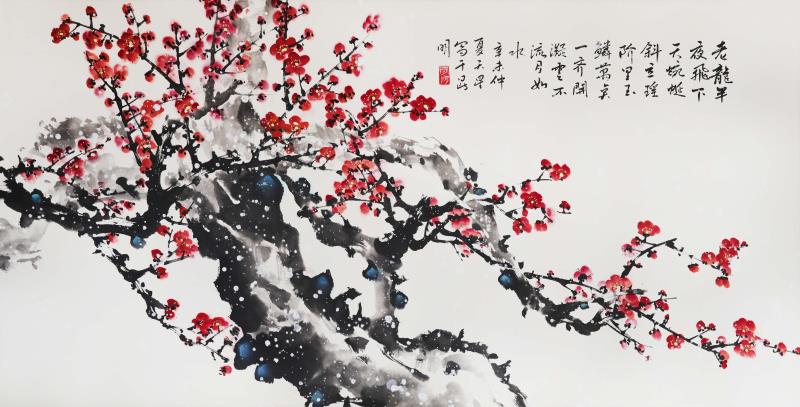 老龍半
夜飛下
天蜿蜒
斜立瑤
階里玉
鱗萬奌
一齊開
凝雲不
流月如
水
辛未仲
夏天
写于昆
明